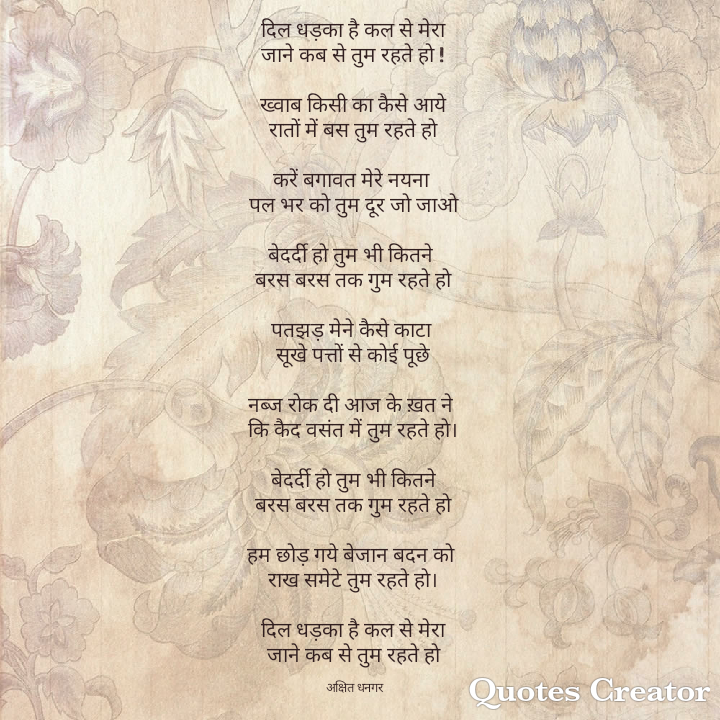 दिल धड़का है कल से मेरा
जाने कब से तुम रहते हो !
ख्वाब किसी का कैसे आये
रातों में बस तुम रहते हो
करें बगावत मेरे नयना
पल भर को तुम दूर जो जाओ
बेदर्दी हो तुम भी कितने
बरस बरस तक गुम रहते हो
पतझड़ मेने कैसे काटा
सूखे पत्तों से कोई पूछे
नब्ज रोक दी आज के ख़त ने
कि कैद वसंत में तुम रहते हो।
बेदर्दी हो तुम भी कितने
बरस बरस तक गुम रहते हो
हम छोड़ गये बेजान बदन को
राख समेटे तुम रहते हो।
दिल धड़का है कल से मेरा
जाने कब से तुम रहते हो
अक्षित धनगर
Quotes Creator